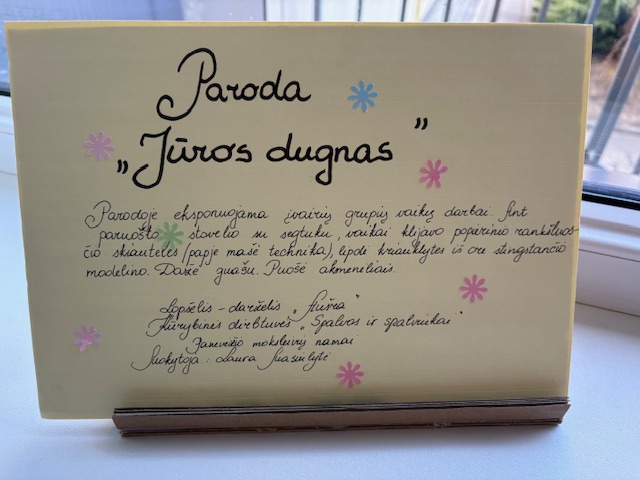 Paroda
„Jūros dugnas”
Parodoje eksponuojama įvairių grupių vaikų darbai Ant
paruošto stovelio su segtuku, vaikai klijavo popierinio rankšluos-
čio skiauteles (papje mašė technika), lipdė kriauklytes iš ore stingstančio
modelino. Dažė guašu. Puošė akmenėliais.
Lopšelis - darželis „Aušra”
Kūrybinės dirbtuvės „Spalvos ir spalviukai”
Panevėžio moksleivių namai
Mokytoja: Laura